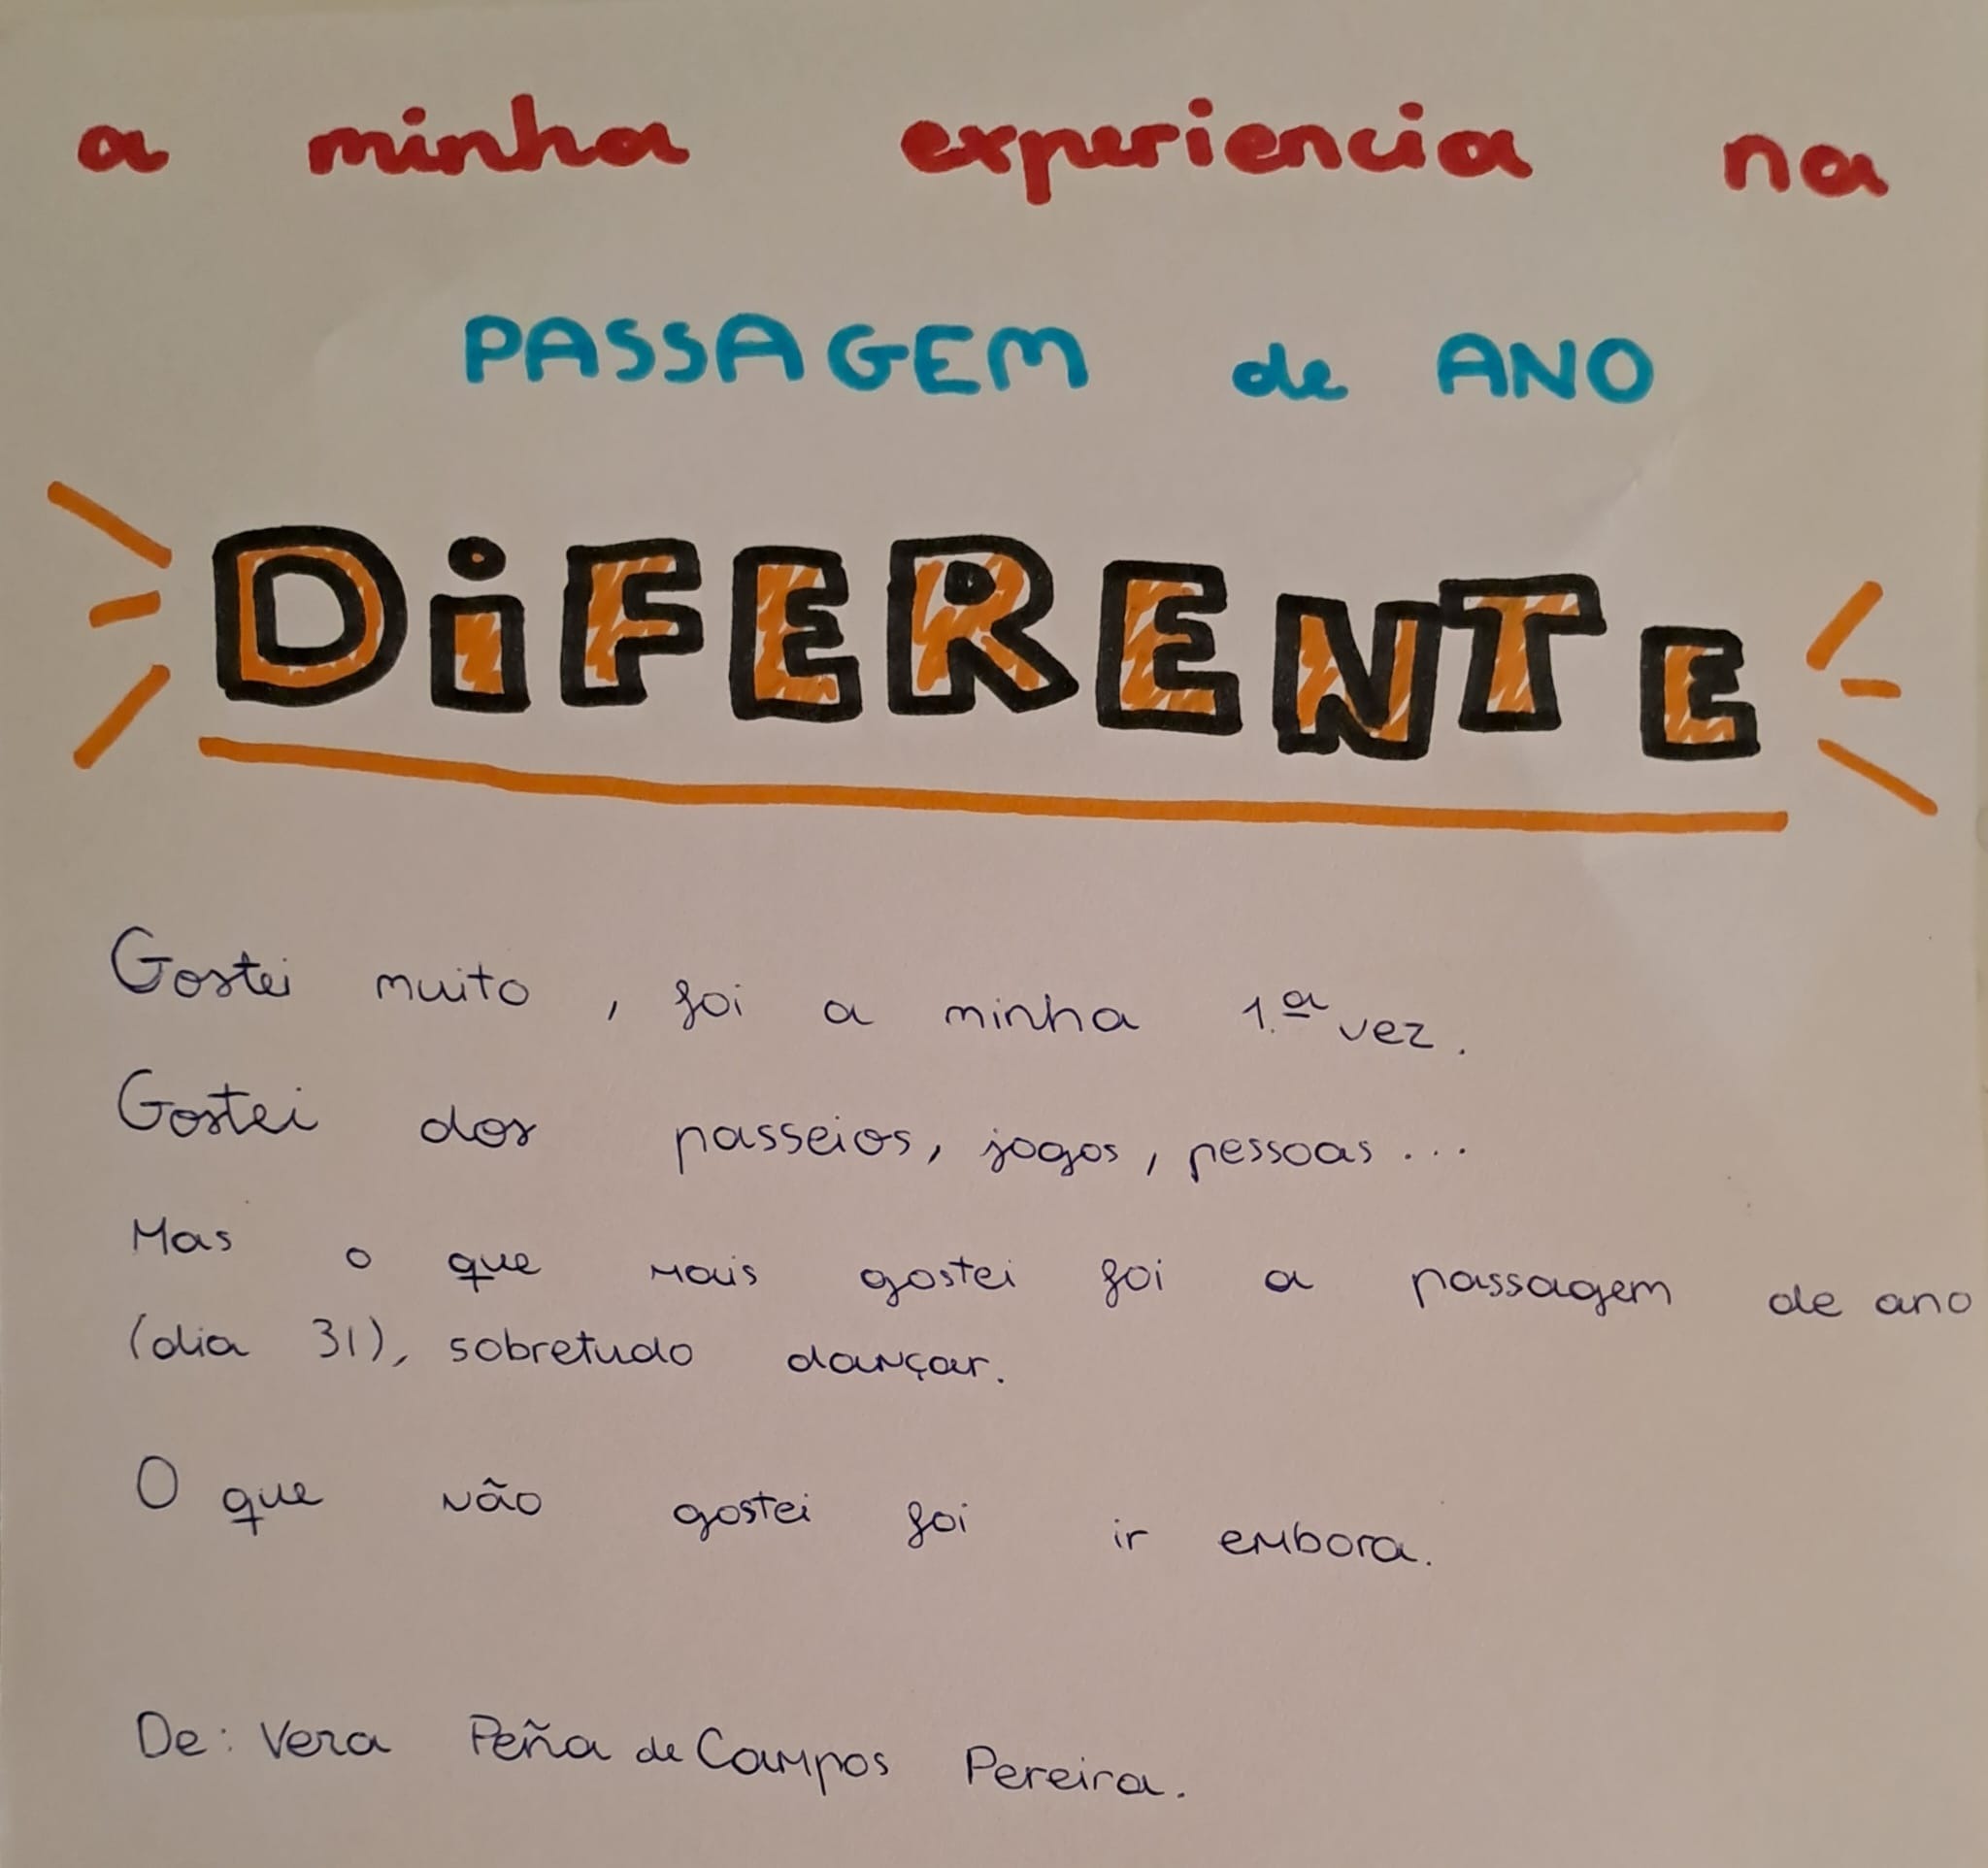 a minha experiencia na
PASSAGEM de ANO
DiFERENTE
Gostei muito, foi a minha 1.ª vez.
Gostei dos passeios, jogos, pessoas...
Mas o que mais gostei foi a passagem de ano
(dia 31), sobretudo dançar.
O que não gostei foi ir embora.
De: Vera Peña de Campos Pereira.